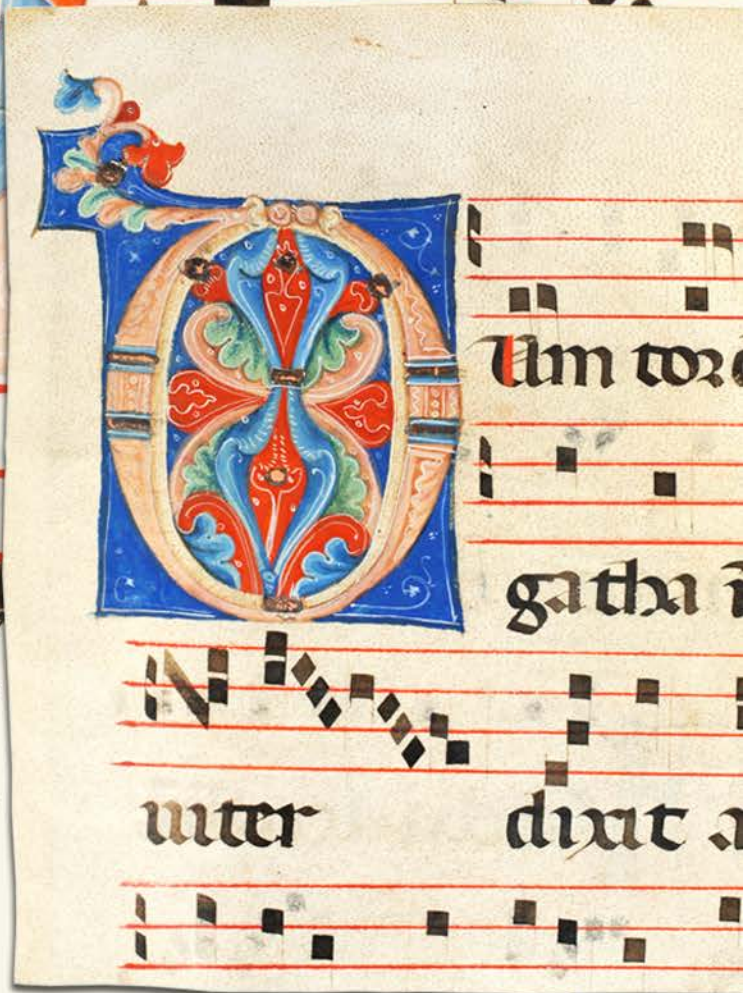 DUm tor
gatha
uiter dixit a